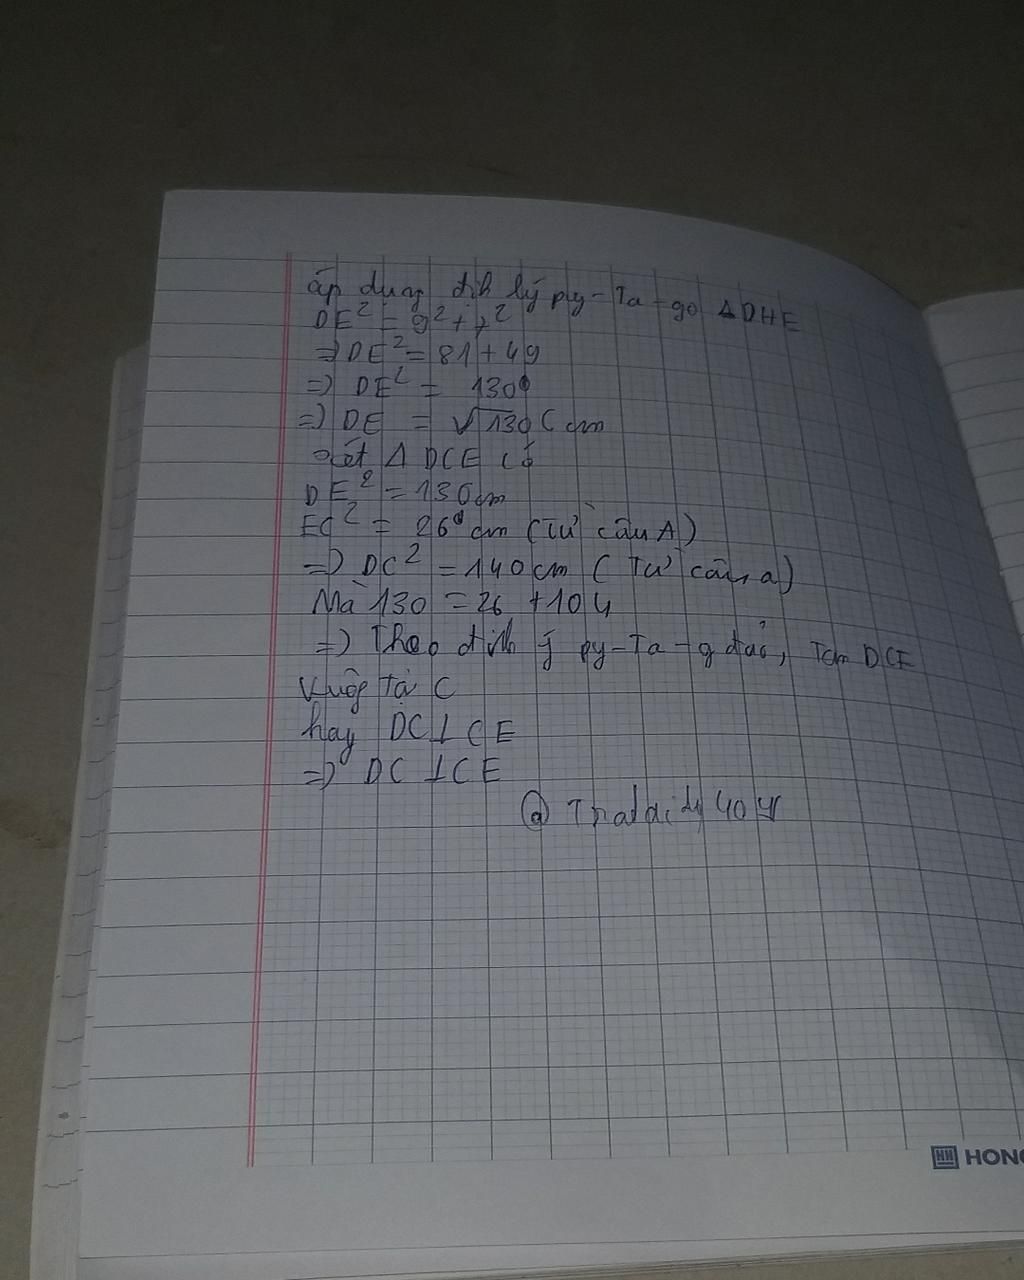 áp dụng địh lý py-Ta-go ΔDHE
DE² = 9² + 7²
=> DE² = 81 + 49
=> DE² = 130
=> DE = √130 (cm
Xét Δ DCE có
DE² = 130cm
EC² = 26 cm (Từ câu A)
=> DC² = 140cm (Từ câu a)
Mà 130 = 26 + 104
=> Theo định lý py-Ta-g đảo, Tam DCE
Vuông tại C
hay DC⊥CE
=> DC⊥CE
@
HONG